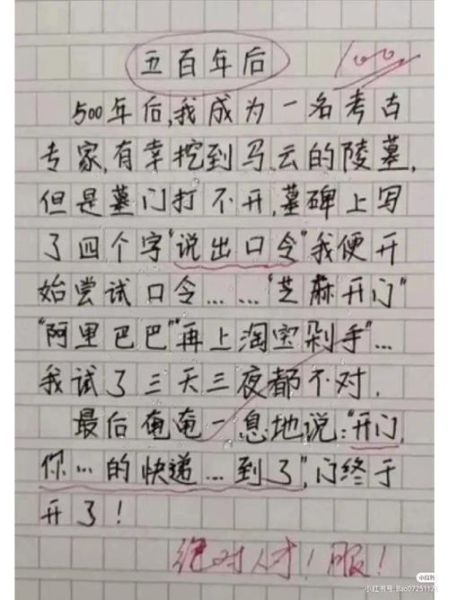 五百年后
100
500年后,我成为一名考古
专家,有幸挖到马云的陵墓,
但是墓门打不开,墓碑上写
了四个字"说出口令"我便开
始尝试口令……"芝麻开门"
"阿里巴巴""再上淘宝剁手"…
我试了三天三夜都不对.
最后奄奄一息地说:"开门,
你…的快递…到了",门终于
开了!
绝对人才!服!
小红书